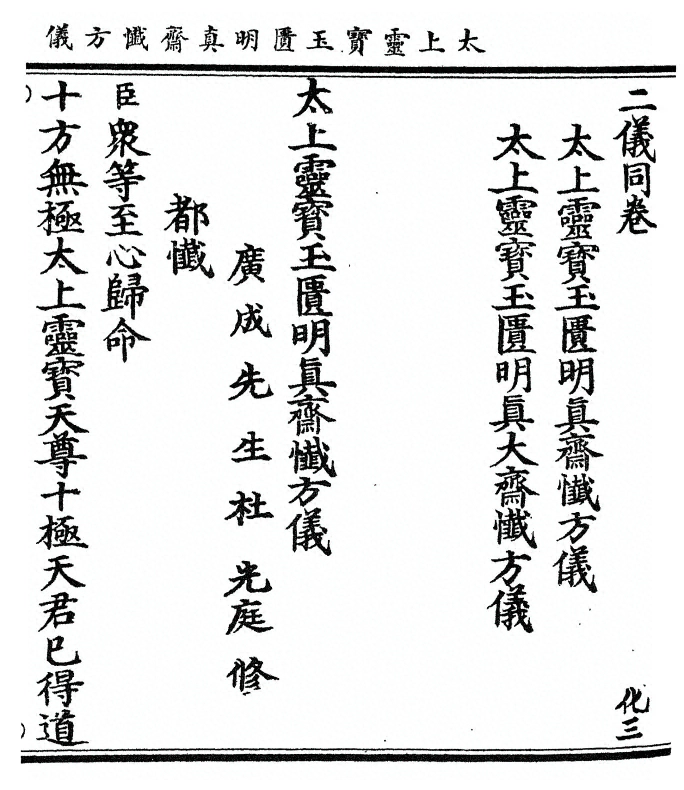 太上靈寶玉匱明真齋懺方儀
二儀同卷 化三
太上靈寶玉匱明眞齋懺方儀
太上靈寶玉匱明眞大齋懺方儀
太上靈寶玉匱明眞齋懺方儀
廣成先生杜光庭修
都懺
臣衆等至心歸命
十方無極太上靈寶天尊十極天君已得道